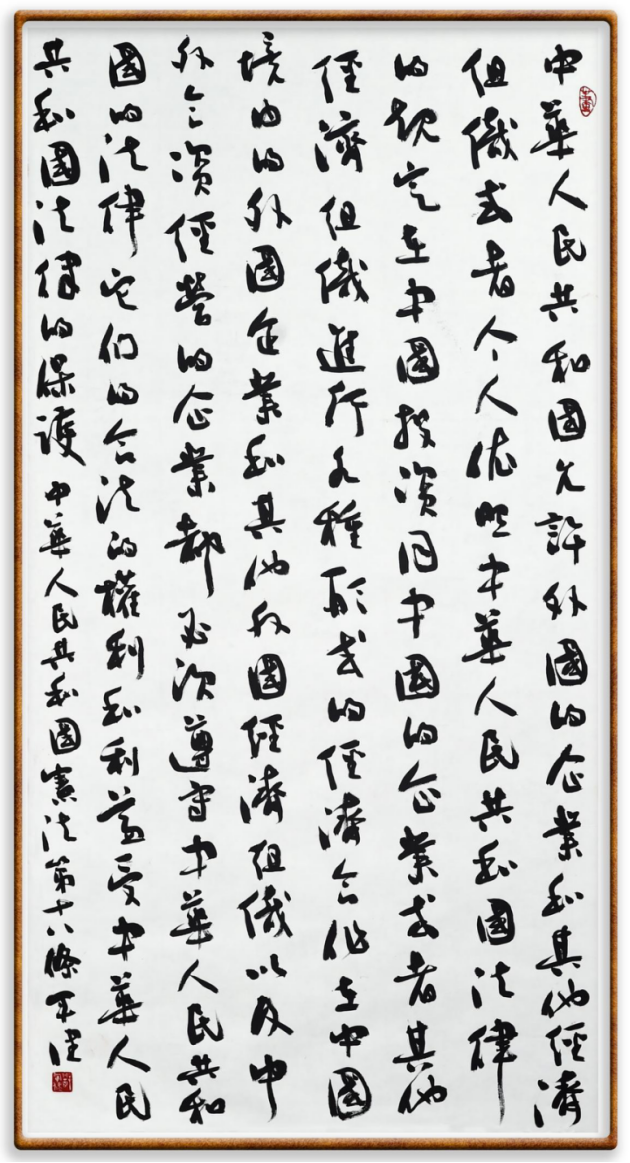 中華人民共和國允許外國的企業和其他經濟
組織或者个人依照中華人民共和國法律
的規定在中國投資同中國的企業或者其他
經濟組織進行各種形式的經濟合作在中國
境内的外國企業和其他外國經濟組織以及中
外合資經營的企業都必須遵守中華人民共和
國的法律它们的合法的權利和利益受中華人民
共和國法律的保護 中華人民共和國憲法第十八條